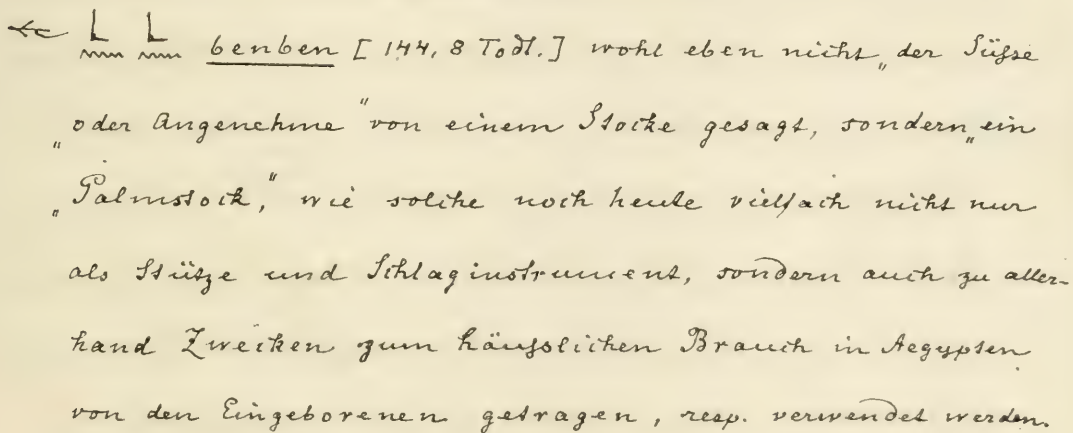 𓃀𓈖𓃀𓈖 benben [144, 8 Todt.] wohl eben nicht „der Süsse
oder Angenehme" von einem Stocke gesagt, sondern „ein
„Palmstock," wie solche noch heute vielfach nicht nur
als Stütze und Schlaginstrument, sondern auch zu aller-
hand Zwecken zum häufslichen Brauch in Aegypten
von den Eingeborenen getragen, resp. verwendet werden.